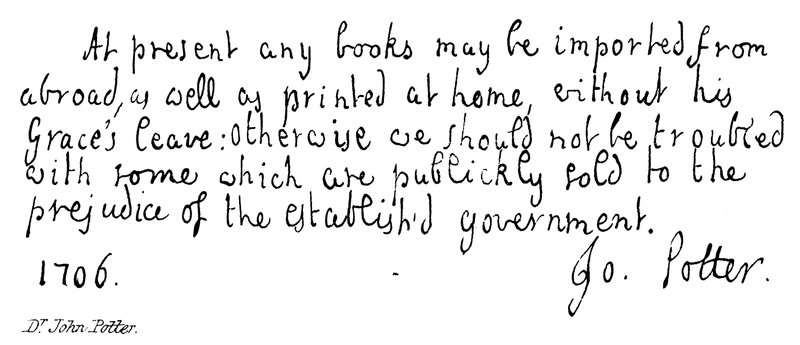 At present any books may be imported from
abroad, as well as printed at home, without his
Grace's leave: otherwise we should not be troubled
with some which are publickly sold to the
prejudice of the establish'd government.
1706.
Jo. Potter.
Dr John Potter.